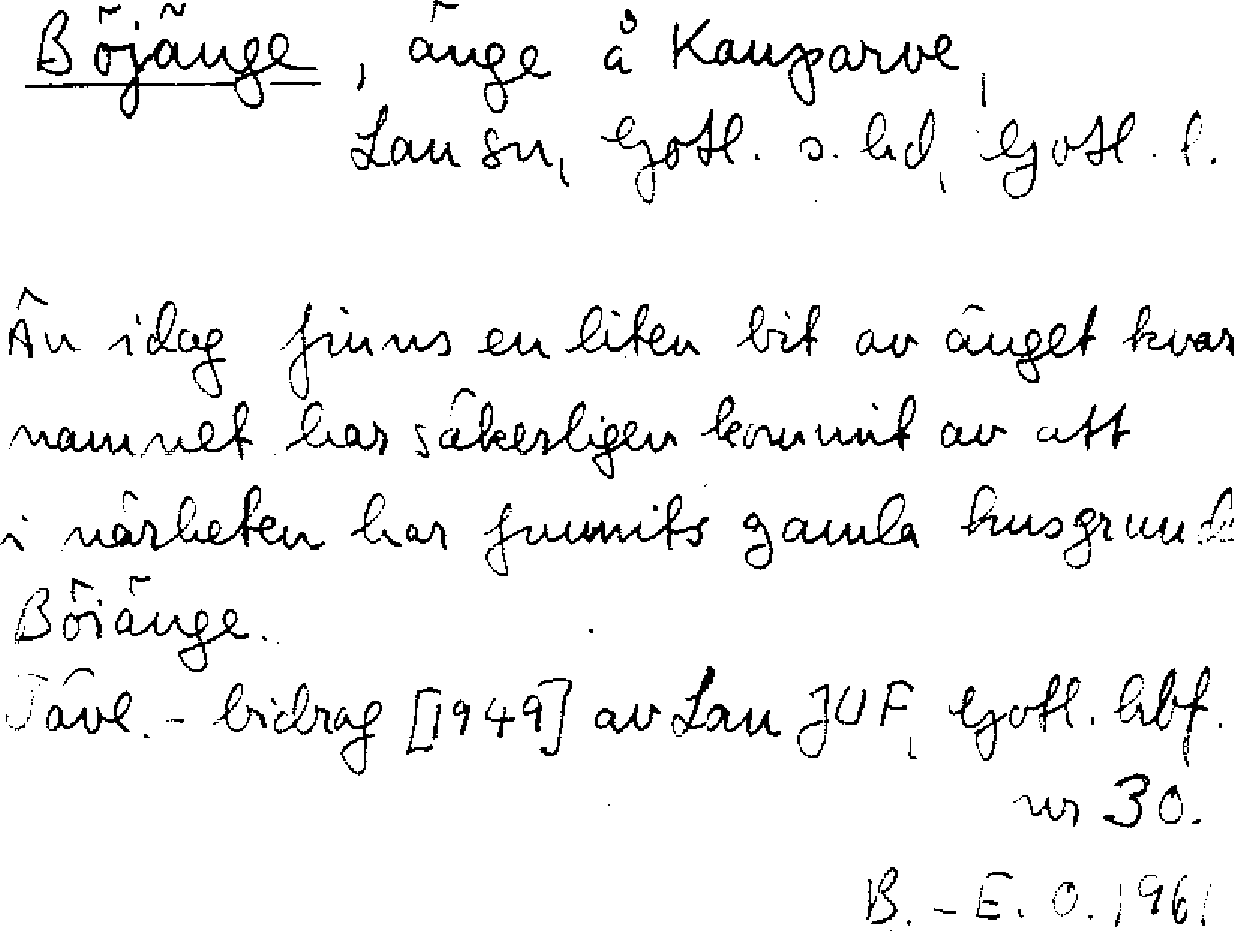 Böjänge, änge å Kauparve,
Lau sn, Gotl. s. hd, Gotl. l.
Än idag finns en liten bit av änget kvar
namnet har säkerligen kommit av att
i närheten har funnits gamla husgrund
Böiänge.
Tävl.-bidrag [1949] av Lau JUF, Gotl. hbf.
nr 30.
B.-E. O. 1961